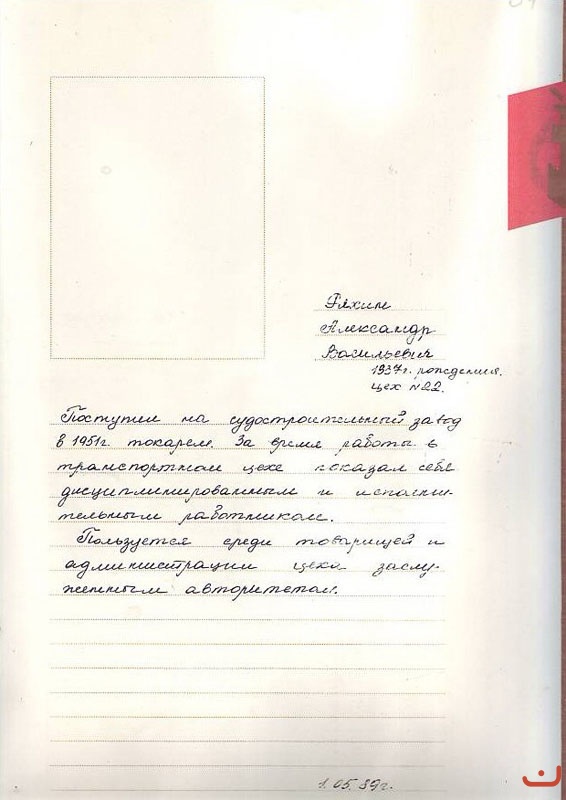 Ряхин
Александр
Васильевич
1937г. рождения.
цех №22.
Поступил на судостроительный завод
в 1951г. токарем. За время работы в
транспортном цехе показал себя
дисциплинированным и исполни-
тельным работником.
Пользуется среди товарищей и
администрации цеха заслу-
женным авторитетом.
1.05.89г.